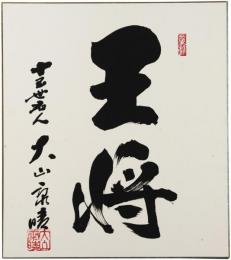 王将
十五世名人 大山康晴